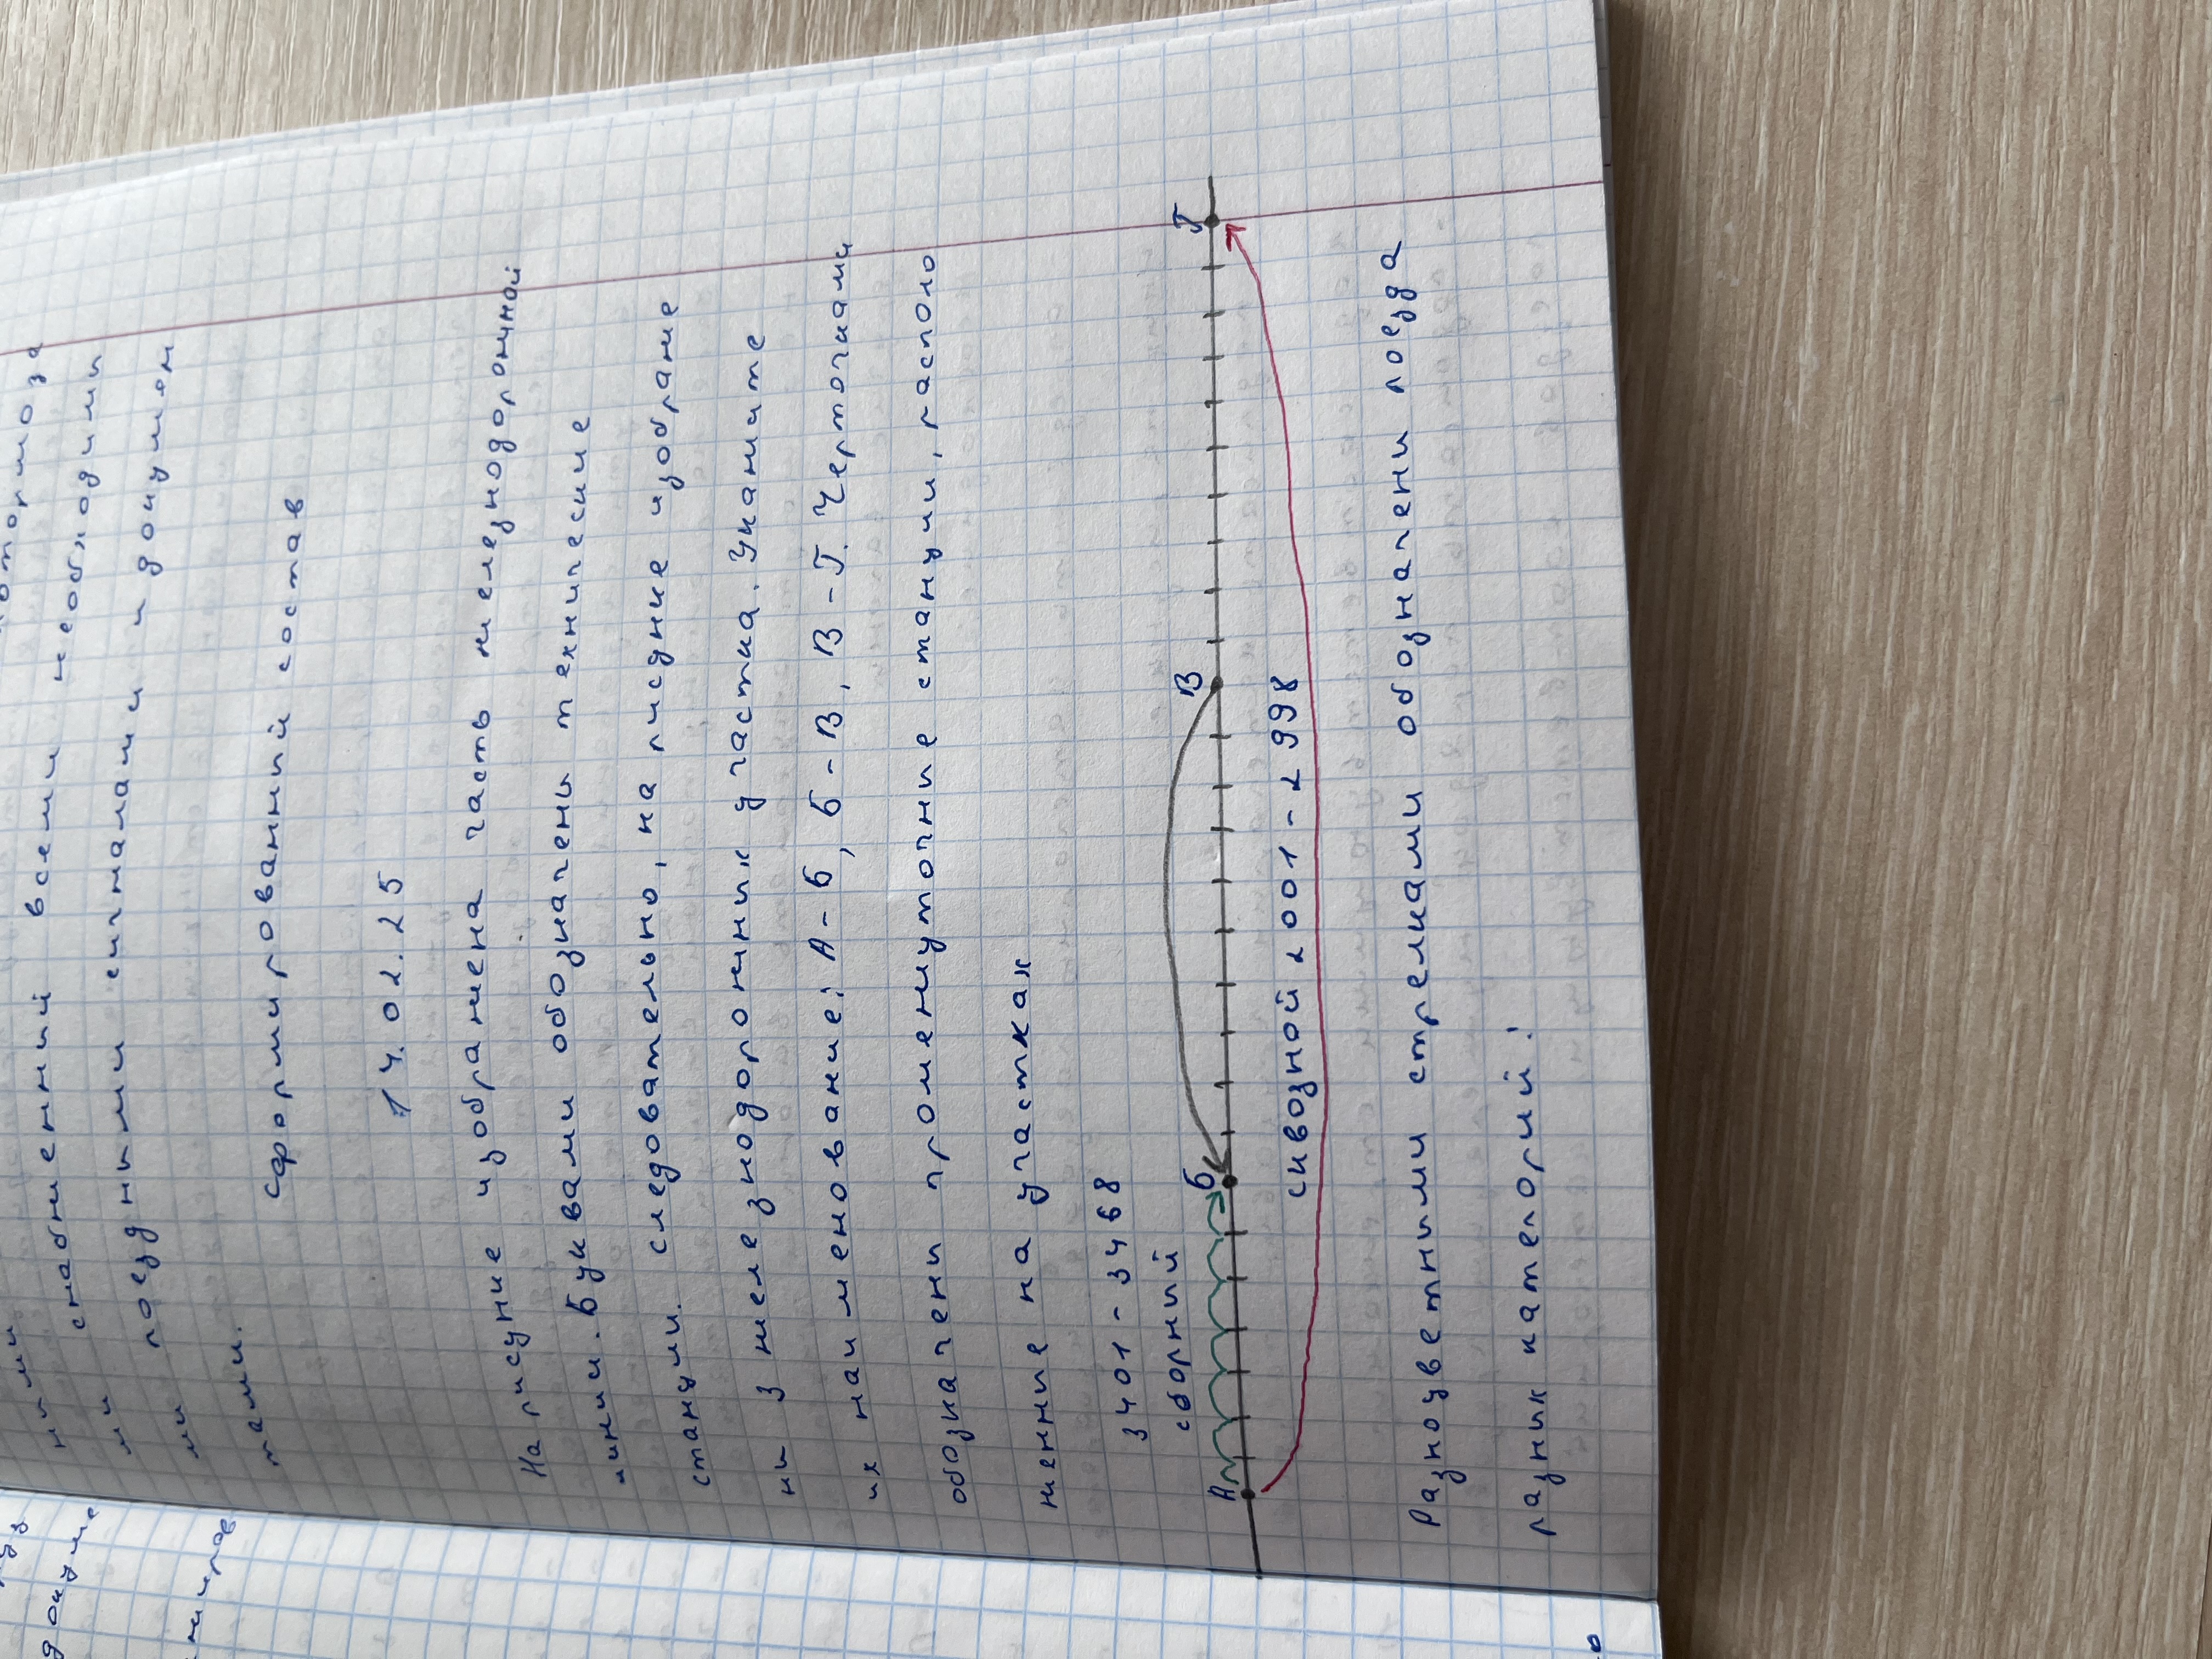 снабженный всеми необходими
ми поездными сигналами и докумен
тами.
Сформированный состав
14.02.25
На рисунке изображена часть железнодорожной
линии. Буквами обозначены технические
станции. следовательно, на рисунке изображе
ны 3 железнодорожных участка. Укажите
их наименование: А-Б, Б-В, В-Г. Черточками
обозначены промежуточные станции, располо
женные на участках
3401-3468
сборный
А Б В Г
сквозной 2001-2998
Разноцветными стрелками обозначены поезда
разных категорий: